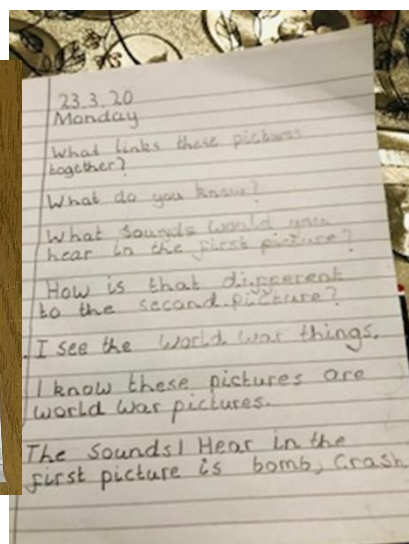 23.3.20
Monday
What links these pictures
together?
What do you know?
What sounds would you
hear in the first picture?
How is that different
to the second picture?
I see the world war things.
I know these pictures are
world war pictures.
The Sounds I Hear in the
first picture is bomb, Crash